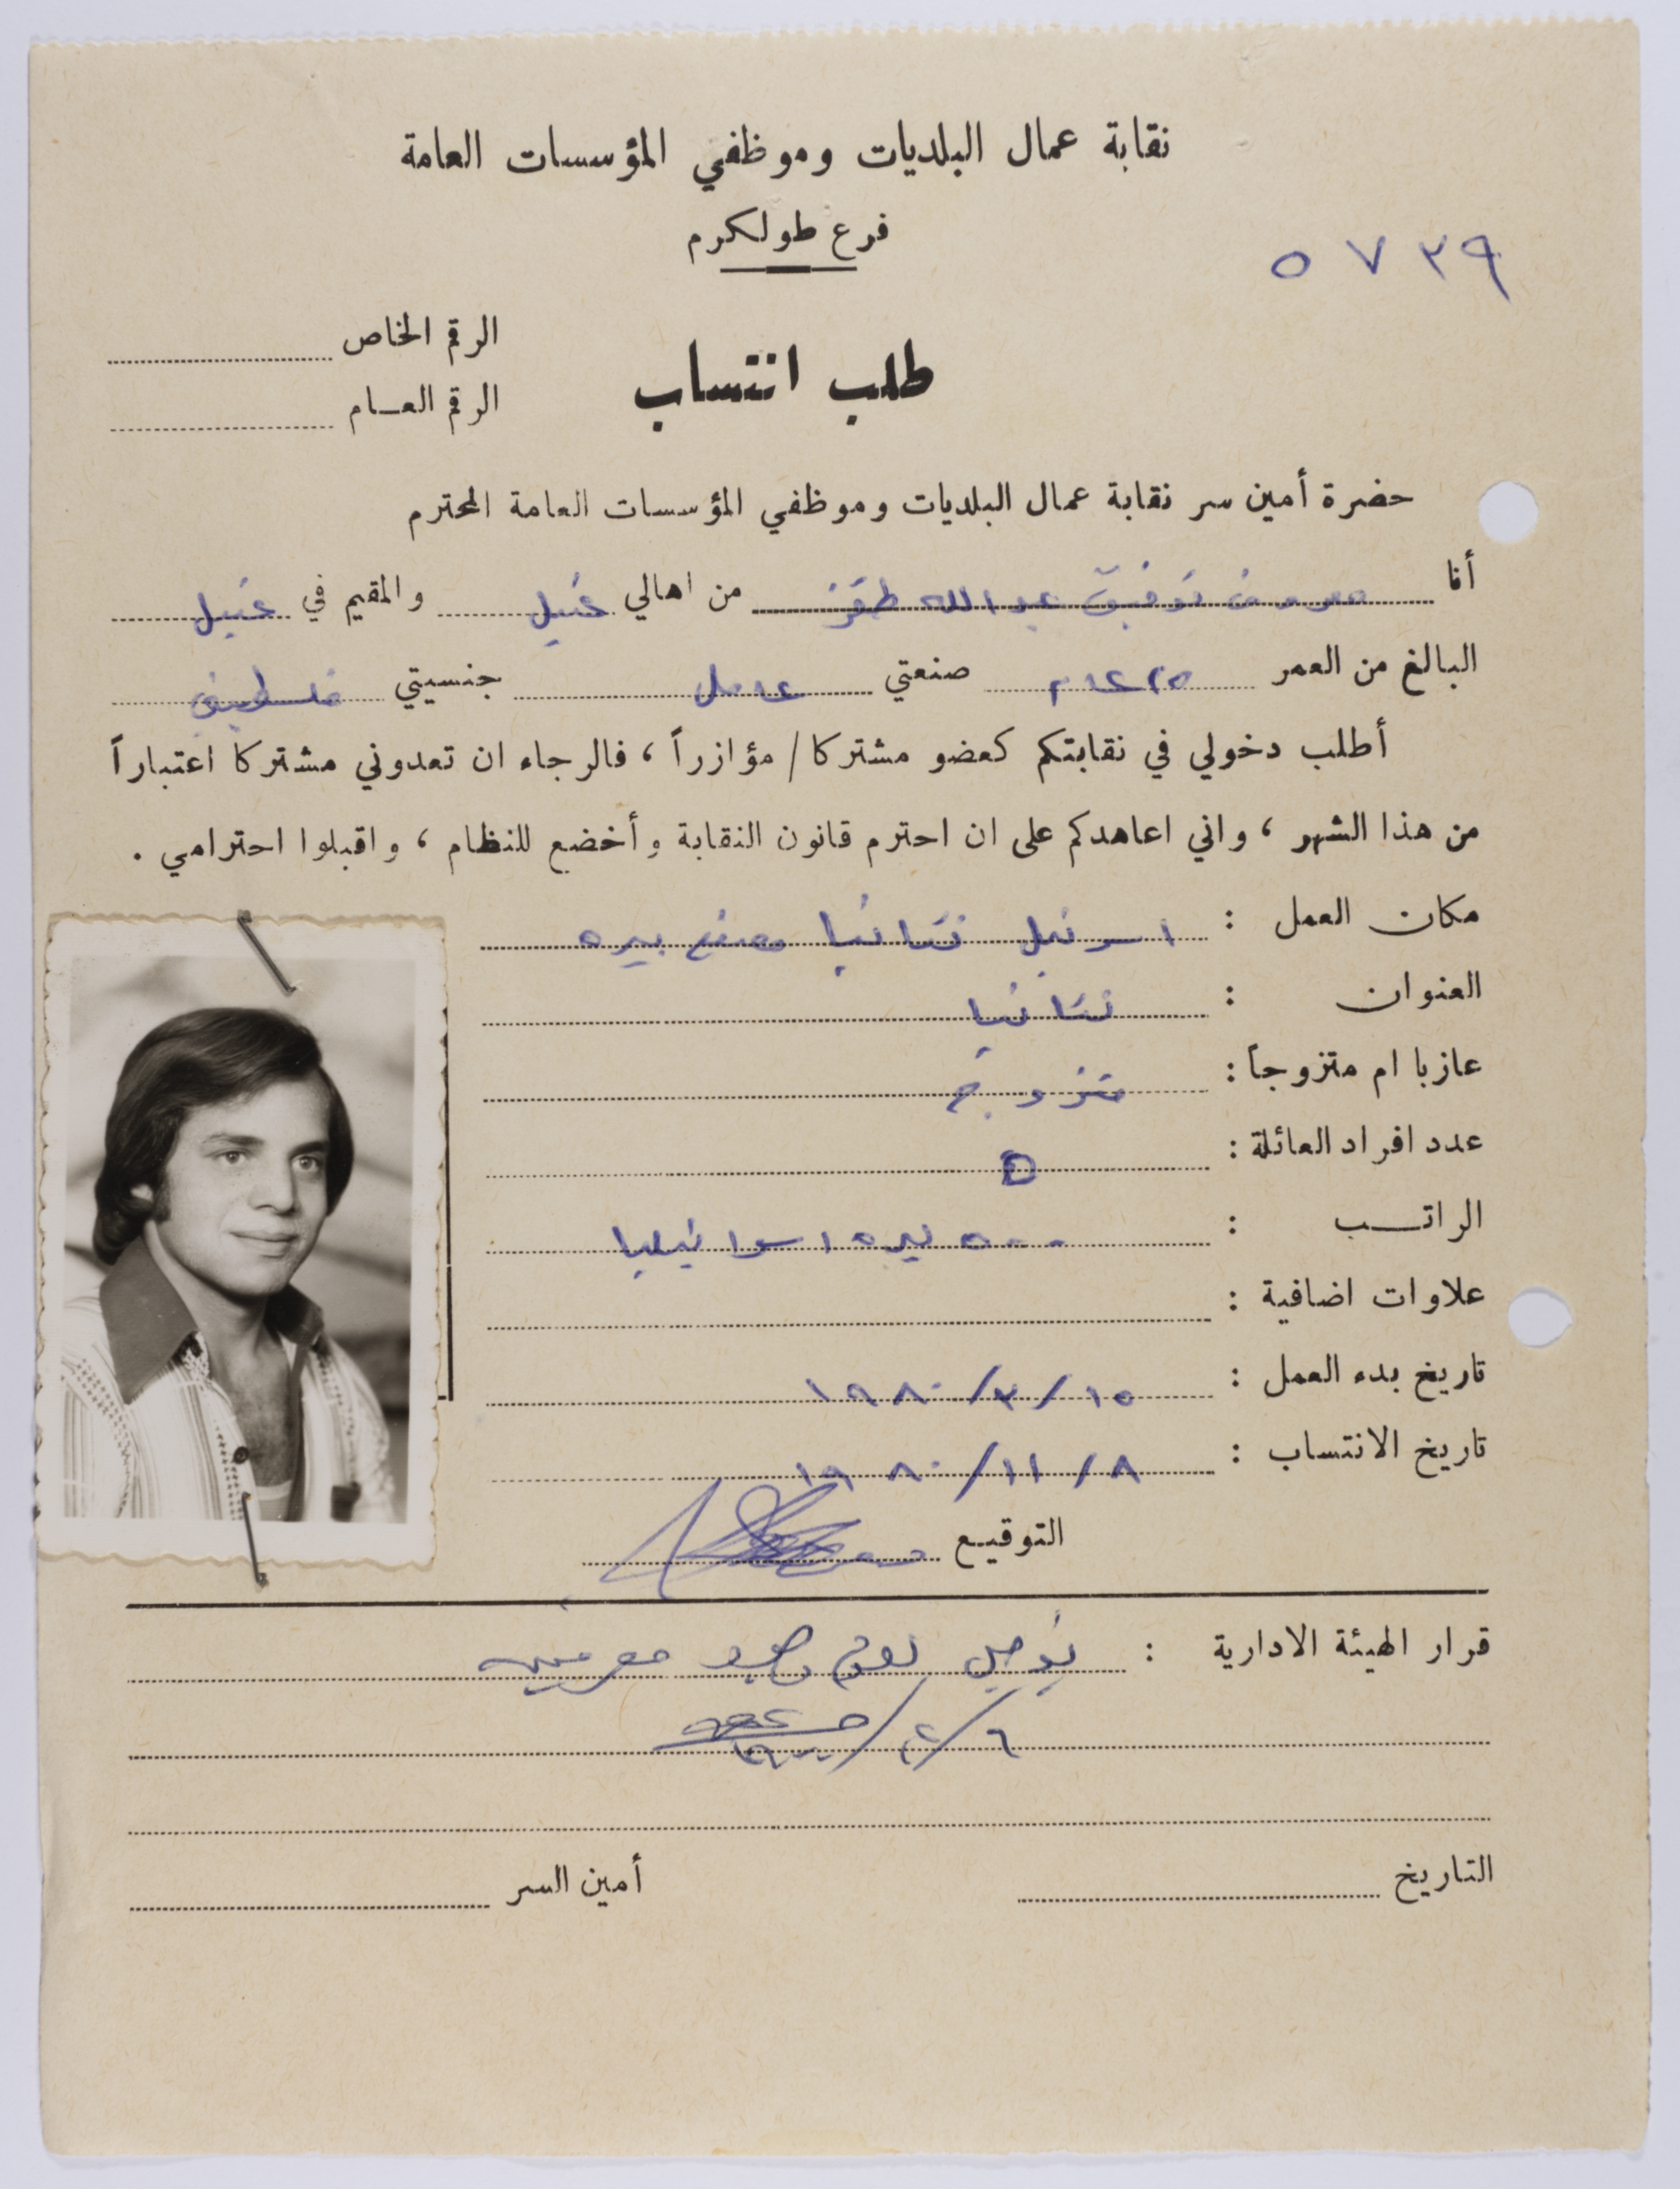 نقابة عمال البلديات وموظفي المؤسسات العامة
فرع طولكرم
٥٧٣٩
الرقم الخاص
طلب انتساب
الرقم العـام
حضرة أمين سر نقابة عمال البلديات وموظفي المؤسسات العامة المحترم
أنا معروف توفيق عبد الله من اهالي عتيل والمقيم في عتيل
البالغ من العمر ٢٥ عام صنعتي عامل جنسيتي فلسطيني
أطلب دخولي في نقابتكم كعضو مشتركا / مؤازراً ، فالرجاء ان تعدوني مشتركا اعتباراً
من هذا الشهر ، واني اعاهدكم على ان احترم قانون النقابة وأخضع للنظام ، واقبلوا احترامي .
مكان العمل : اسرئيل نتانيا مصنع بيره
العنوان : نتانيا
عازبا ام متزوجاً : متزوج
عدد افراد العائلة : ٥
الراتـــب : ٥٠٠ ليره اسرائيليا
علاوات اضافية :
تاريخ بدء العمل : ١٥/٣/١٩٨٠
تاريخ الانتساب : ٨/١١/١٩٨٠
التوقيـع
قرار الهيئة الادارية : يؤجل لعدم
٦/٢/
التاريخ
أمين السر